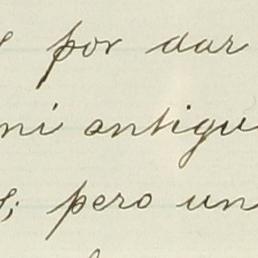 por dar
ni antigu
s; pero un